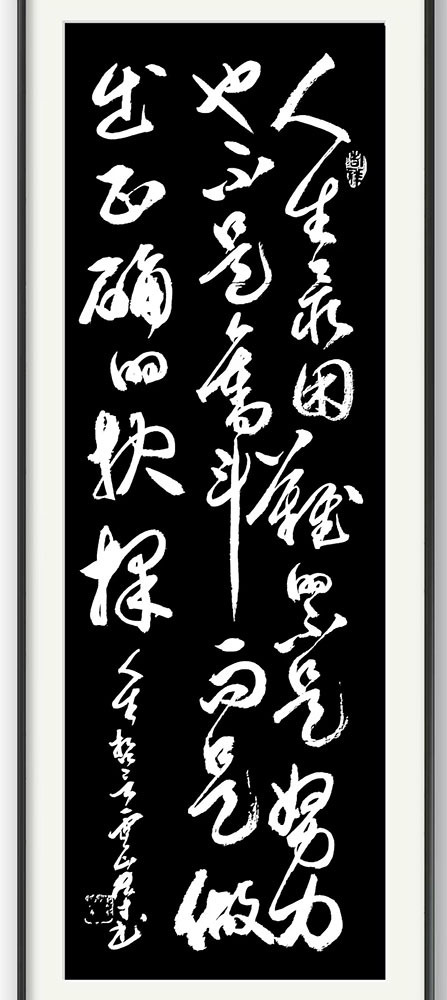 人生最困難的不是努力
也不是奮斗而是做
出正確的抉擇
人生